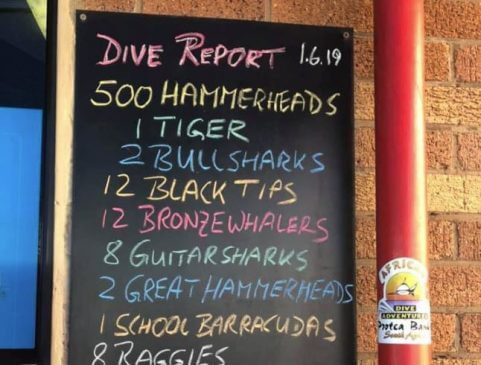 DIVE REPORT 1.6.19
500 HAMMERHEADS
1 TIGER
2 BULLSHARKS
12 BLACK TIPS
12 BRONZEWHALERS
8 GUITARSHARKS
2 GREAT HAMMERHEADS
1 SCHOOL BARRACUDAS
8 RAGGIES
AFRICAN
DIVE
ADVENTURES
Protea Bank
South